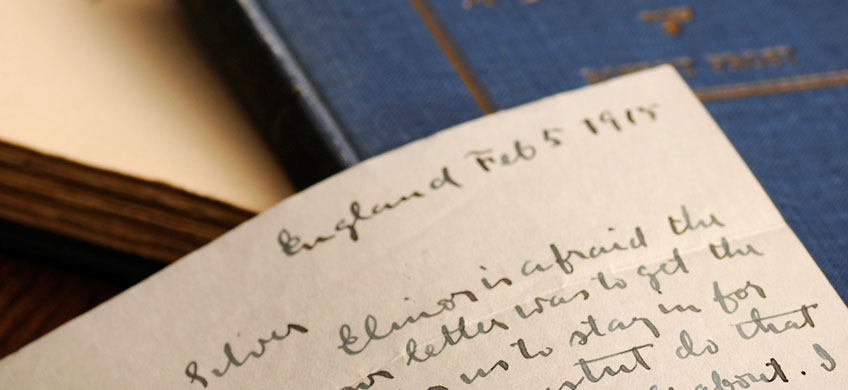 ROBERT FROST
England Feb 5 1915
Silver
Elinor is afraid the
letter was to get the
us to stay in for
do that
about. I